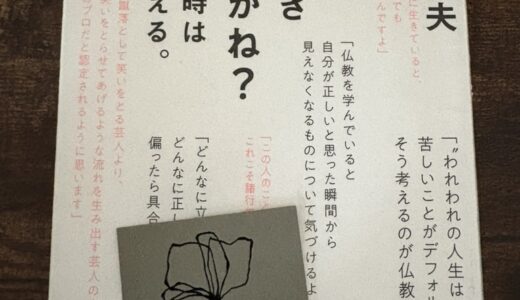 夫
に生きていると
でも
んですよ」
さ
がね？
時は
える。
「“われわれの人生は
苦しいことがデフォ
そう考えるのが仏教
「仏教を学んでいると
自分が正しいと思った瞬間から
見えなくなるものについて気づけるよ
「この人のこ
これこそ諸行
「どんなに立
どんなに正し
偏ったら具合
蹴落として笑いをとる芸人より
笑いをとらせてあげるような流れを生み出す芸人の
プロだと認定されるように思います」